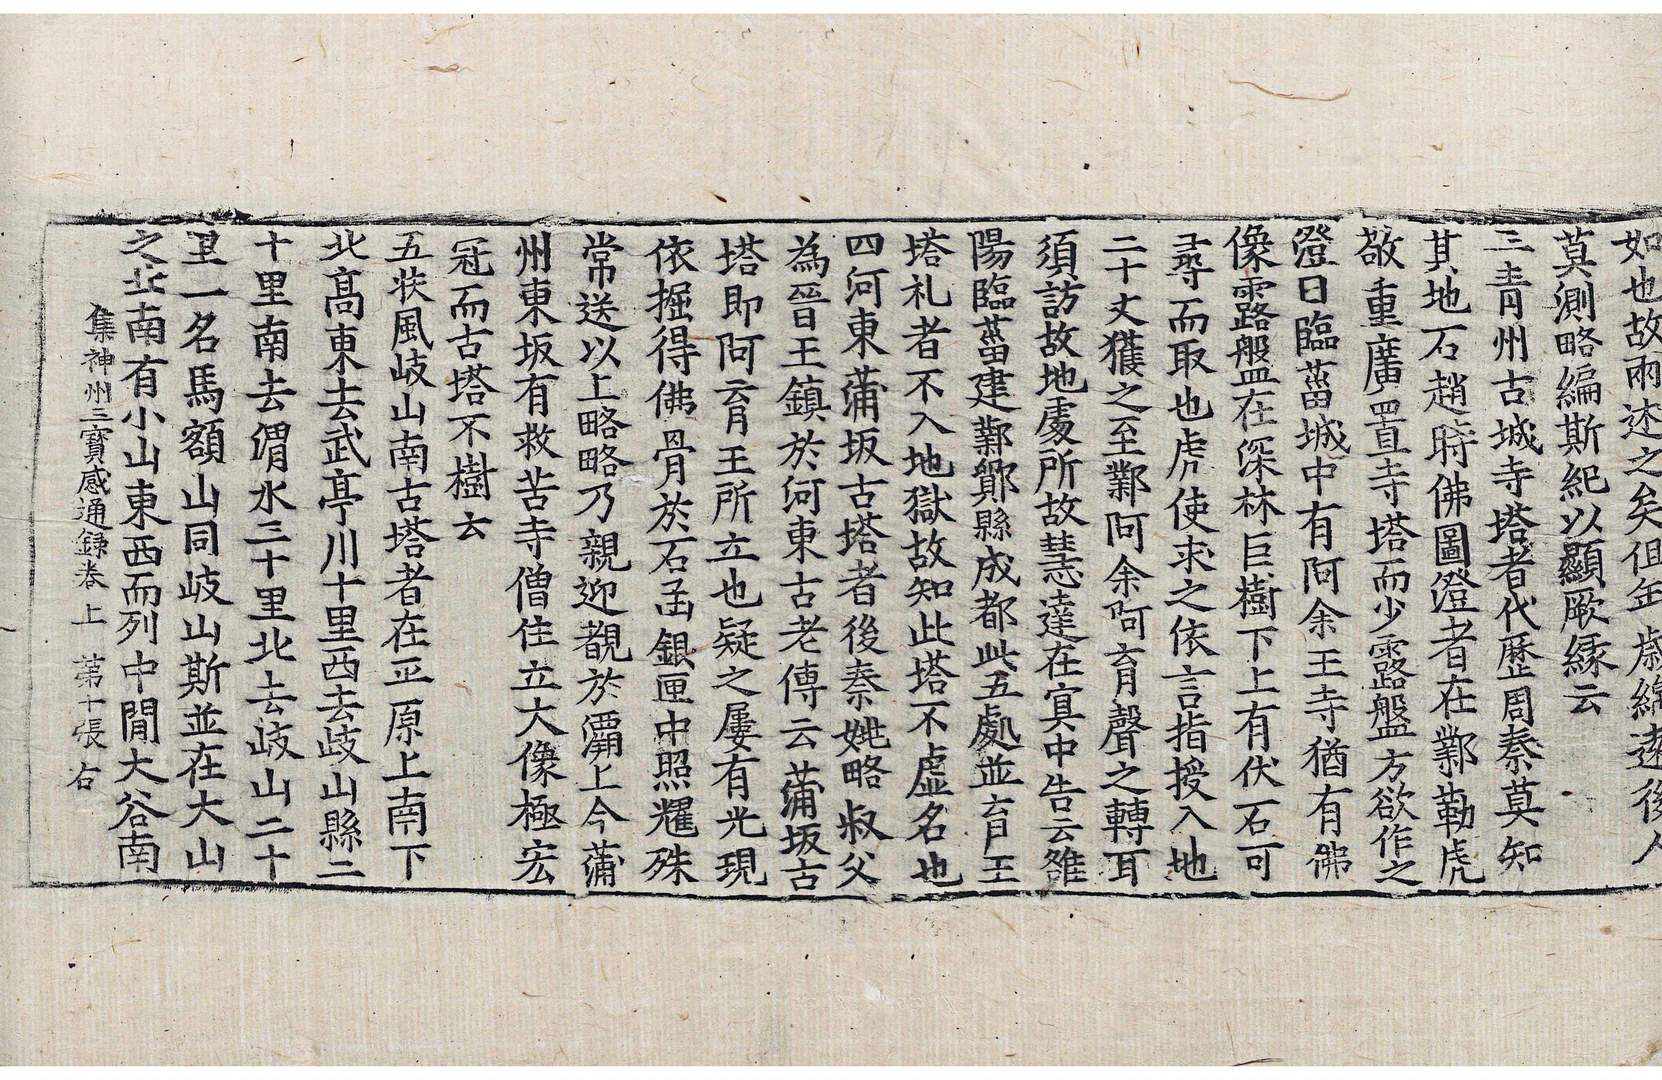 如也故雨述之矣但年歲綿遠後人
莫測略編斯紀以顯厥緣云
三青州古城寺塔者代歷周秦莫知
其地石趙時佛圖澄者在鄴勒虎
敬重廣置寺塔而少露盤方欲作之
澄曰臨菑城中有阿余王寺猶有佛
像露盤在深林巨樹下上有伏石可
尋而取也虎使求之依言指授入地
二十丈獲之至鄴阿余阿育聲之轉耳
須訪故地處所故慧達在冥中告云雒
陽臨菑建鄴鄮縣成都此五處並育王
塔礼者不入地獄故知此塔不虛名也
四河東蒲坂古塔者後秦姚略叔父
為晉王鎮於河東古老傳云蒲坂古
塔即阿育王所立也疑之屢有光現
依掘得佛骨於石函銀匣中照耀殊
常送以上略略乃親迎覩於灞上今蒲
州東坂有救苦寺僧住立大像極宏
冠而古塔不樹云
五扶風岐山南古塔者在平原上南下
北高東去武亭川十里西去岐山縣二
十里南去渭水三十里北去岐山二十
里一名馬額山同岐山斯並在大山
之北南有小山東西而列中間大谷南
集神州三寶感通録卷上 第十張 右